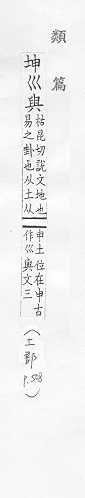 類篇
坤巛與
枯昆切說文地也
易之卦也从土从
申土位在申古
作巛與文三
(土部 P.508)